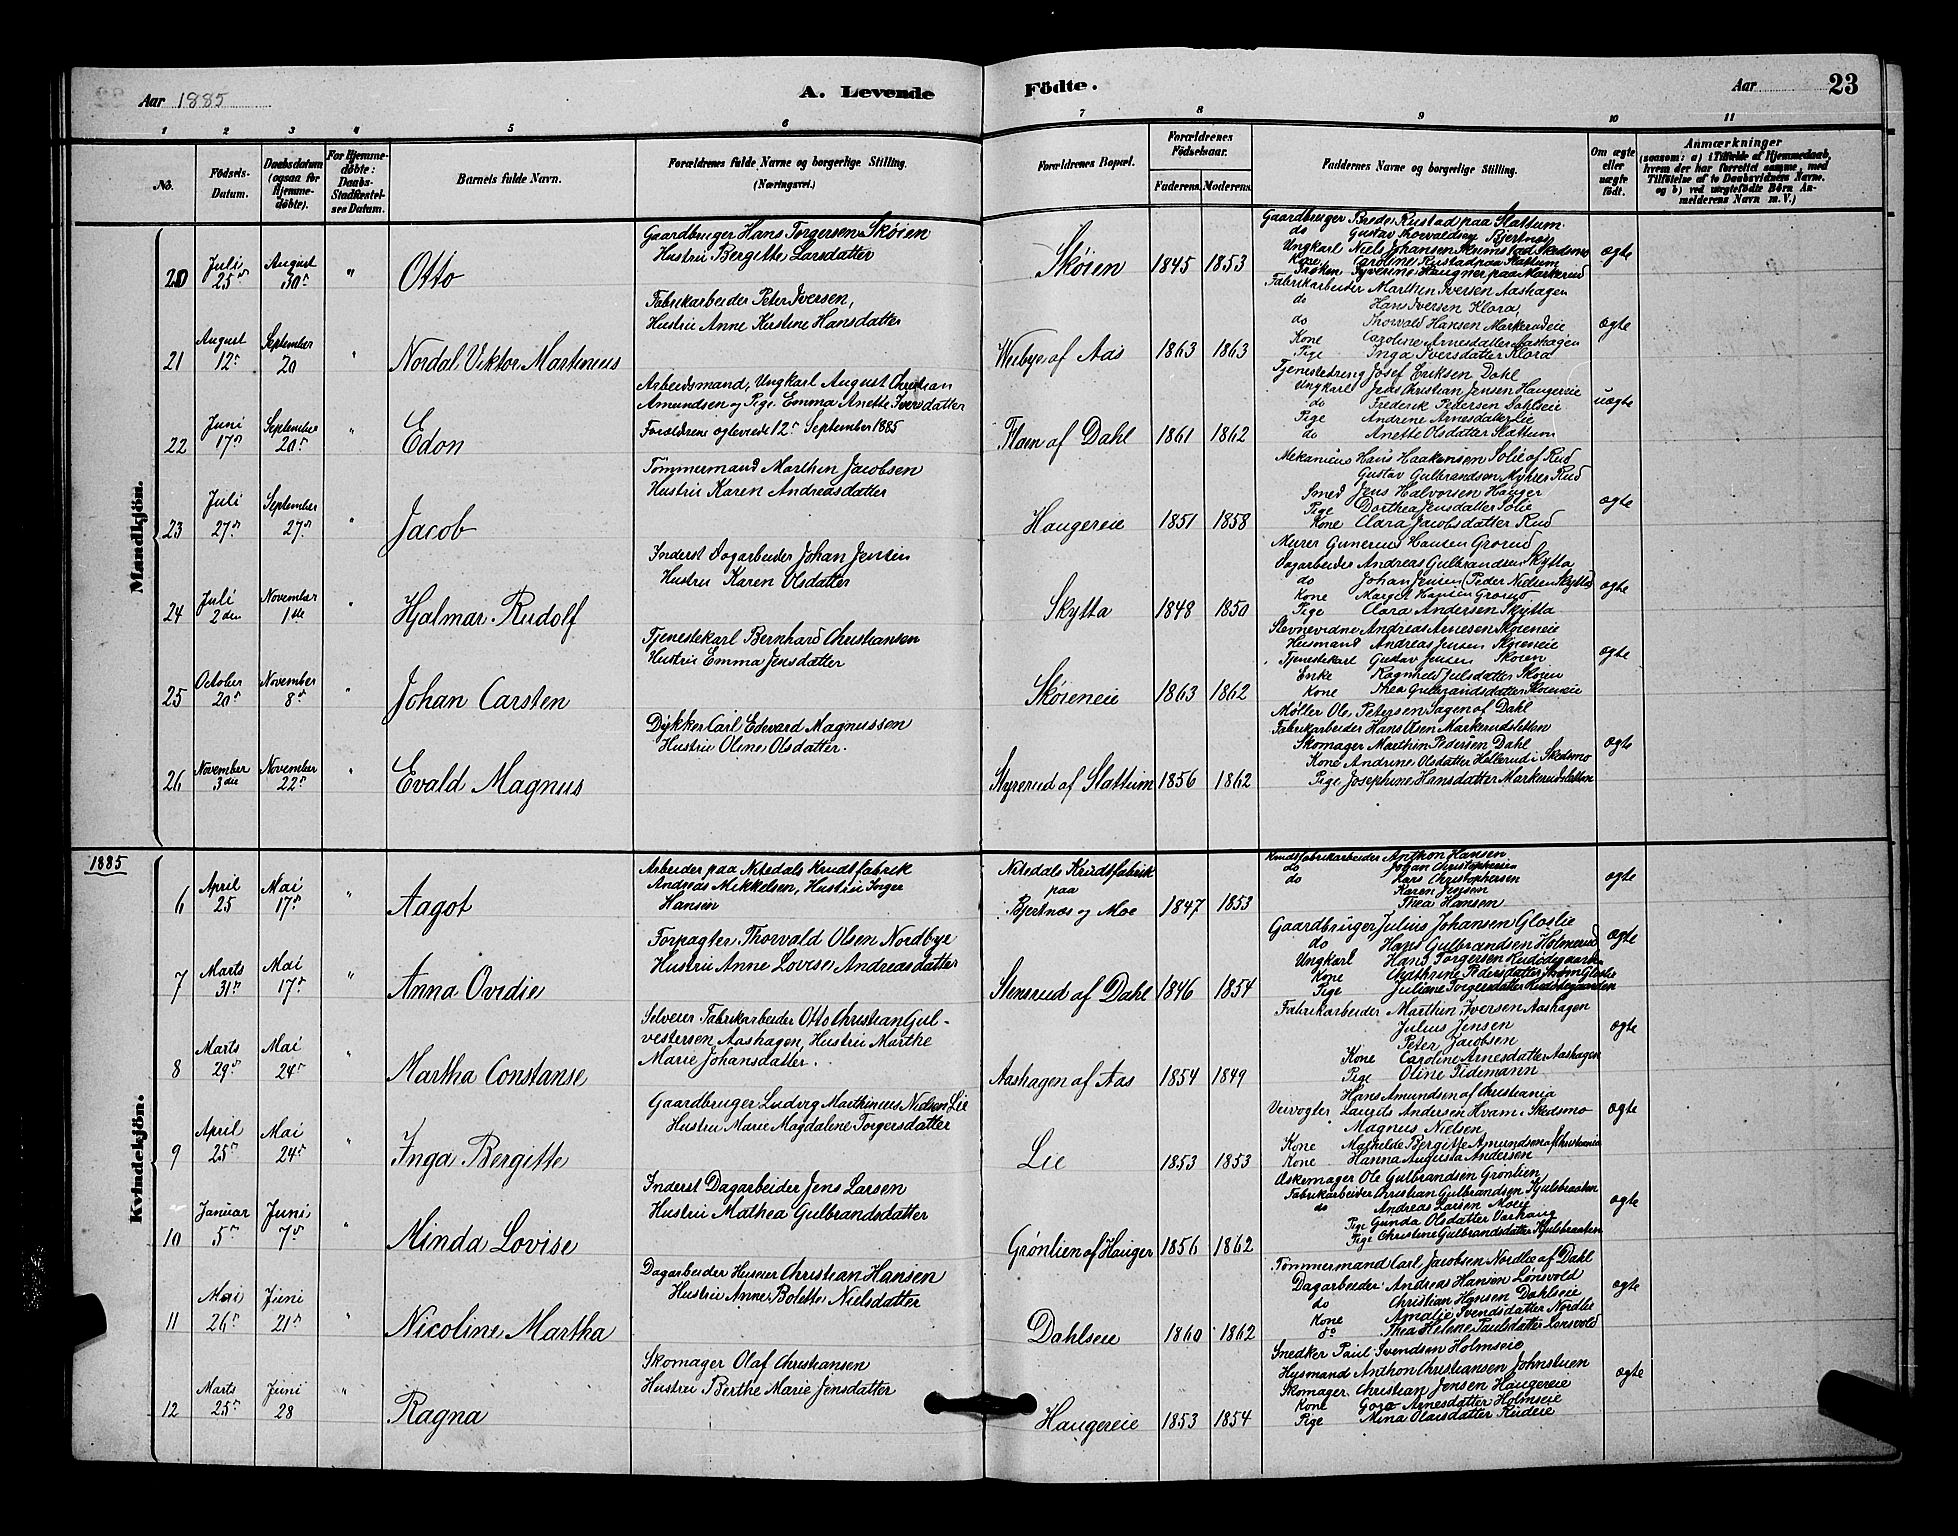 Aar 1885
A. Levende
Födte.
Aar
23
1 2 3 4 5 6 7 8 9 10 11
No.
Födsels-Datum.
Daabsdatum (ogsaa for Hjemme-döbte).
For Hjemme-döbte: Daabs-Stadfæstel-ses Datum.
Barnets fulde Navn.
Forældrenes fulde Navne og borgerlige Stilling.
(Næringsvei.)
Forældrenes Bopæl.
Forældrenes Födselsaar.
Faderens. Moderens.
Faddernes Navne og borgerlige Stilling.
Om ægte eller uægte födt.
Anmærkninger
(saasom: a) i Tilfælde af Hjemmedaab,
hvem der har forrettet samme, med
Tilföielse af to Daabsvidners Navne,
og b) ved uægtefödte Börn An-
melderens Navn m. V.)
Mandkjön.
20 Juli 25de August 30te " Otto
Gaardbruger Hans Torgersen Skøien
Hustru Bergitte Larsdatter
Skøien 1845 1853
Gaardbruger Brede Rustad paa Slattum
do Gustav Thorvaldsen Bjertnæs
Ungkarl Niels Johansen Skedsmo
Kone Caroline Rustad paa Slattum
Frøken Syverine Haugner paa Markerud
ægte
21 August 12te September 20 " Nordal Viktor Martinius
Fabrikarbeider Peter Iversen,
Hustru Anne Kirstine Hansdatter
af Aas 1863 1863
Fabrikarbeider Marthin Iversen Aashagen
do Hans Iversen Klora
do Thorvald Hansen Markerudeie
Kone Caroline Arnesdatter Aashagen
Pige Inga Iversdatter Klora
ægte
22 Juni 17de September 20de " Edon
Arbeidsmand, Ungkarl August Christian
Amundsen og Pige Emma Anette Iversdatter
Forældrene ægteviede 12te September 1885
af Dahl 1861 1862
Tjenestedreng Josef Eriksen Dahl
Ungkarl Jens Christian Jensen Haugereie
do Frederik Pedersen Dahlseie
Pige Andrine Arnesdatter Lie
do Anette Olsdatter Slattum
uægte
23 Juli 27de September 27de " Jacob
Tömmermand Marthin Jacobsen
Hustru Karen Andreasdatter
Haugereie 1851 1858
Mekanicus Hans Haakensen Solie af Rud
Gustav Gulbrandsen Myhrer Rud
Smed Jens Halvorsen Hauger
Pige Dorthea Jensdatter Solie
Kone Clara Jacobsdatter Rud
ægte
24 Juli 2den November 1ste " Hjalmar Rudolf
Inderst Dagarbeider Johan Jensen
Hustru Karen Olsdatter
Skytta 1848 1850
Murer Gunerius Hansen Grorud
Dagarbeider Andreas Gulbrandsen Skytta
do Johan Jensen (Peder Nielsen Skytta)
Kone Margit Hansen Grorud
Pige Clara Andersen Skytta
ægte
25 October 20de November 8de " Johan Carsten
Tjenestekarl Bernhard Christiansen
Hustru Emma Jensdatter
Skøieneie 1863 1862
Stevnevidne Andreas Arnesen Skøieneie
Husmand Andreas Jensen Skøieneie
Tjenestekarl Gustav Jensen Skøien
Enke Ragnhild Julsdatter Skøien
Kone Thea Gulbrandsdatter Skøieneie
ægte
26 November 3die November 22de " Evald Magnus
Dykker Carl Edvard Magnussen
Hustru Oline Olsdatter.
Styrerud af Slattum 1856 1862
Møller Ole Petersen Sagen af Dahl
Fabrikarbeider Hans Olsen Markerudsletten
Skomager Marthin Pedersen Dahl
Kone Andrine Olsdatter Hellerud i Skedsmo
Pige Josephine Hansdatter Markerudsletten
ægte
1885
Kvindekjön.
6 April 25 Mai 17de " Aagot
Arbeider paa Nitedals Krudtfabrik
Andreas Mikkelsen, Hustru Inger
Hansen
Nitedals Krudtfabrik
paa
Bjertnæs og Moe 1847 1853
Krudtfabrikarbeider Anthon Hansen
do Johan Christophersen
do Lars Christophersen
Karen Jensen
Thea Hansen
ægte
7 Marts 31te Mai 17de " Anna Ovidie
Forpagter Thorvald Olsen Nordbye
Hustru Anne Lovise Andreasdatter
Stensrud af Dahl 1846 1854
Gaardbruger Julius Johansen Gloslie
do Hans Gulbrandsen Holmerud
Ungkarl Hans Torgersen
Kone Cathrine Pedersdatter Gloslie
Pige Juliane Torgersdatter
ægte
8 Marts 29de Mai 24de " Martha Constanse
Selveier Fabrikarbeider Otto Christian Gul-
vestersen Aashagen, Hustru Marthe
Marie Johansdatter.
Aashagen af Aas 1854 1849
Fabrikarbeider Marthin Iversen Aashagen
Julius Jensen
Peter Jacobsen
Kone Caroline Arnesdatter Aashagen
Pige Oline Tidemann
ægte
9 April 25de Mai 24de " Inga Bergitte
Gaardbruger Ludvig Marthinius Nielsen Lie
Hustru Marie Magdaline Torgersdatter
Lie 1853 1853
Hans Amundsen af Christiania
Veivogter Laurits Andersen Hvam i Skedsmo
Magnus Nielsen
Kone Mathilde Bergitte Amundsen af Christiania
Kone Hanna Augusta Andersen
ægte
10 Januar 5te Juni 7de " Minda Lovise
Inderst Dagarbeider Jens Larsen
Hustru Mathea Gulbrandsdatter
Grønlien af Hauger 1856 1862
Æskemager Ole Gulbrandsen Grønlien
Fabrikarbeider Christian Gulbrandsen Kjulsbraaten
do Andreas Larsen Moen
Pige Gunda Olsdatter Varhaug
Pige Christine Gulbrandsdatter Kjulsbraaten
ægte
11 Mai 26de Juni 21de " Nicoline Martha
Dagarbeider Huseier Christian Hansen
Hustru Anne Bolette Nielsdatter
Dahlseie 1860 1862
Tømmermand Carl Jacobsen Nordlie af Dahl
Dagarbeider Andreas Hansen Lønsvold
do Christian Hansen Dahlseie
Kone Amalie Svendsdatter Nordlie
do Thea Helene Paulsdatter Lønsvold
ægte
12 Marts 25de Juni 28 " Ragna
Skomager Olaf Christiansen
Hustru Berthe Marie Jensdatter
Haugereie 1853 1854
Snedker Paul Svendsen Holmseie
Husmand Anthon Christiansen Johnstuen
Skomager Christian Jensen Haugereie
Kone Goro Arnesdatter Holmseie
Pige Mina Olausdatter Rudeie
ægte